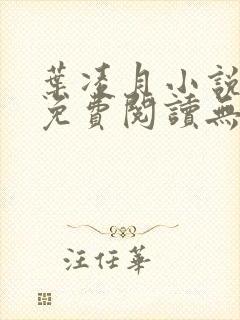 葉凌月小說
免費閱讀無
汪任華